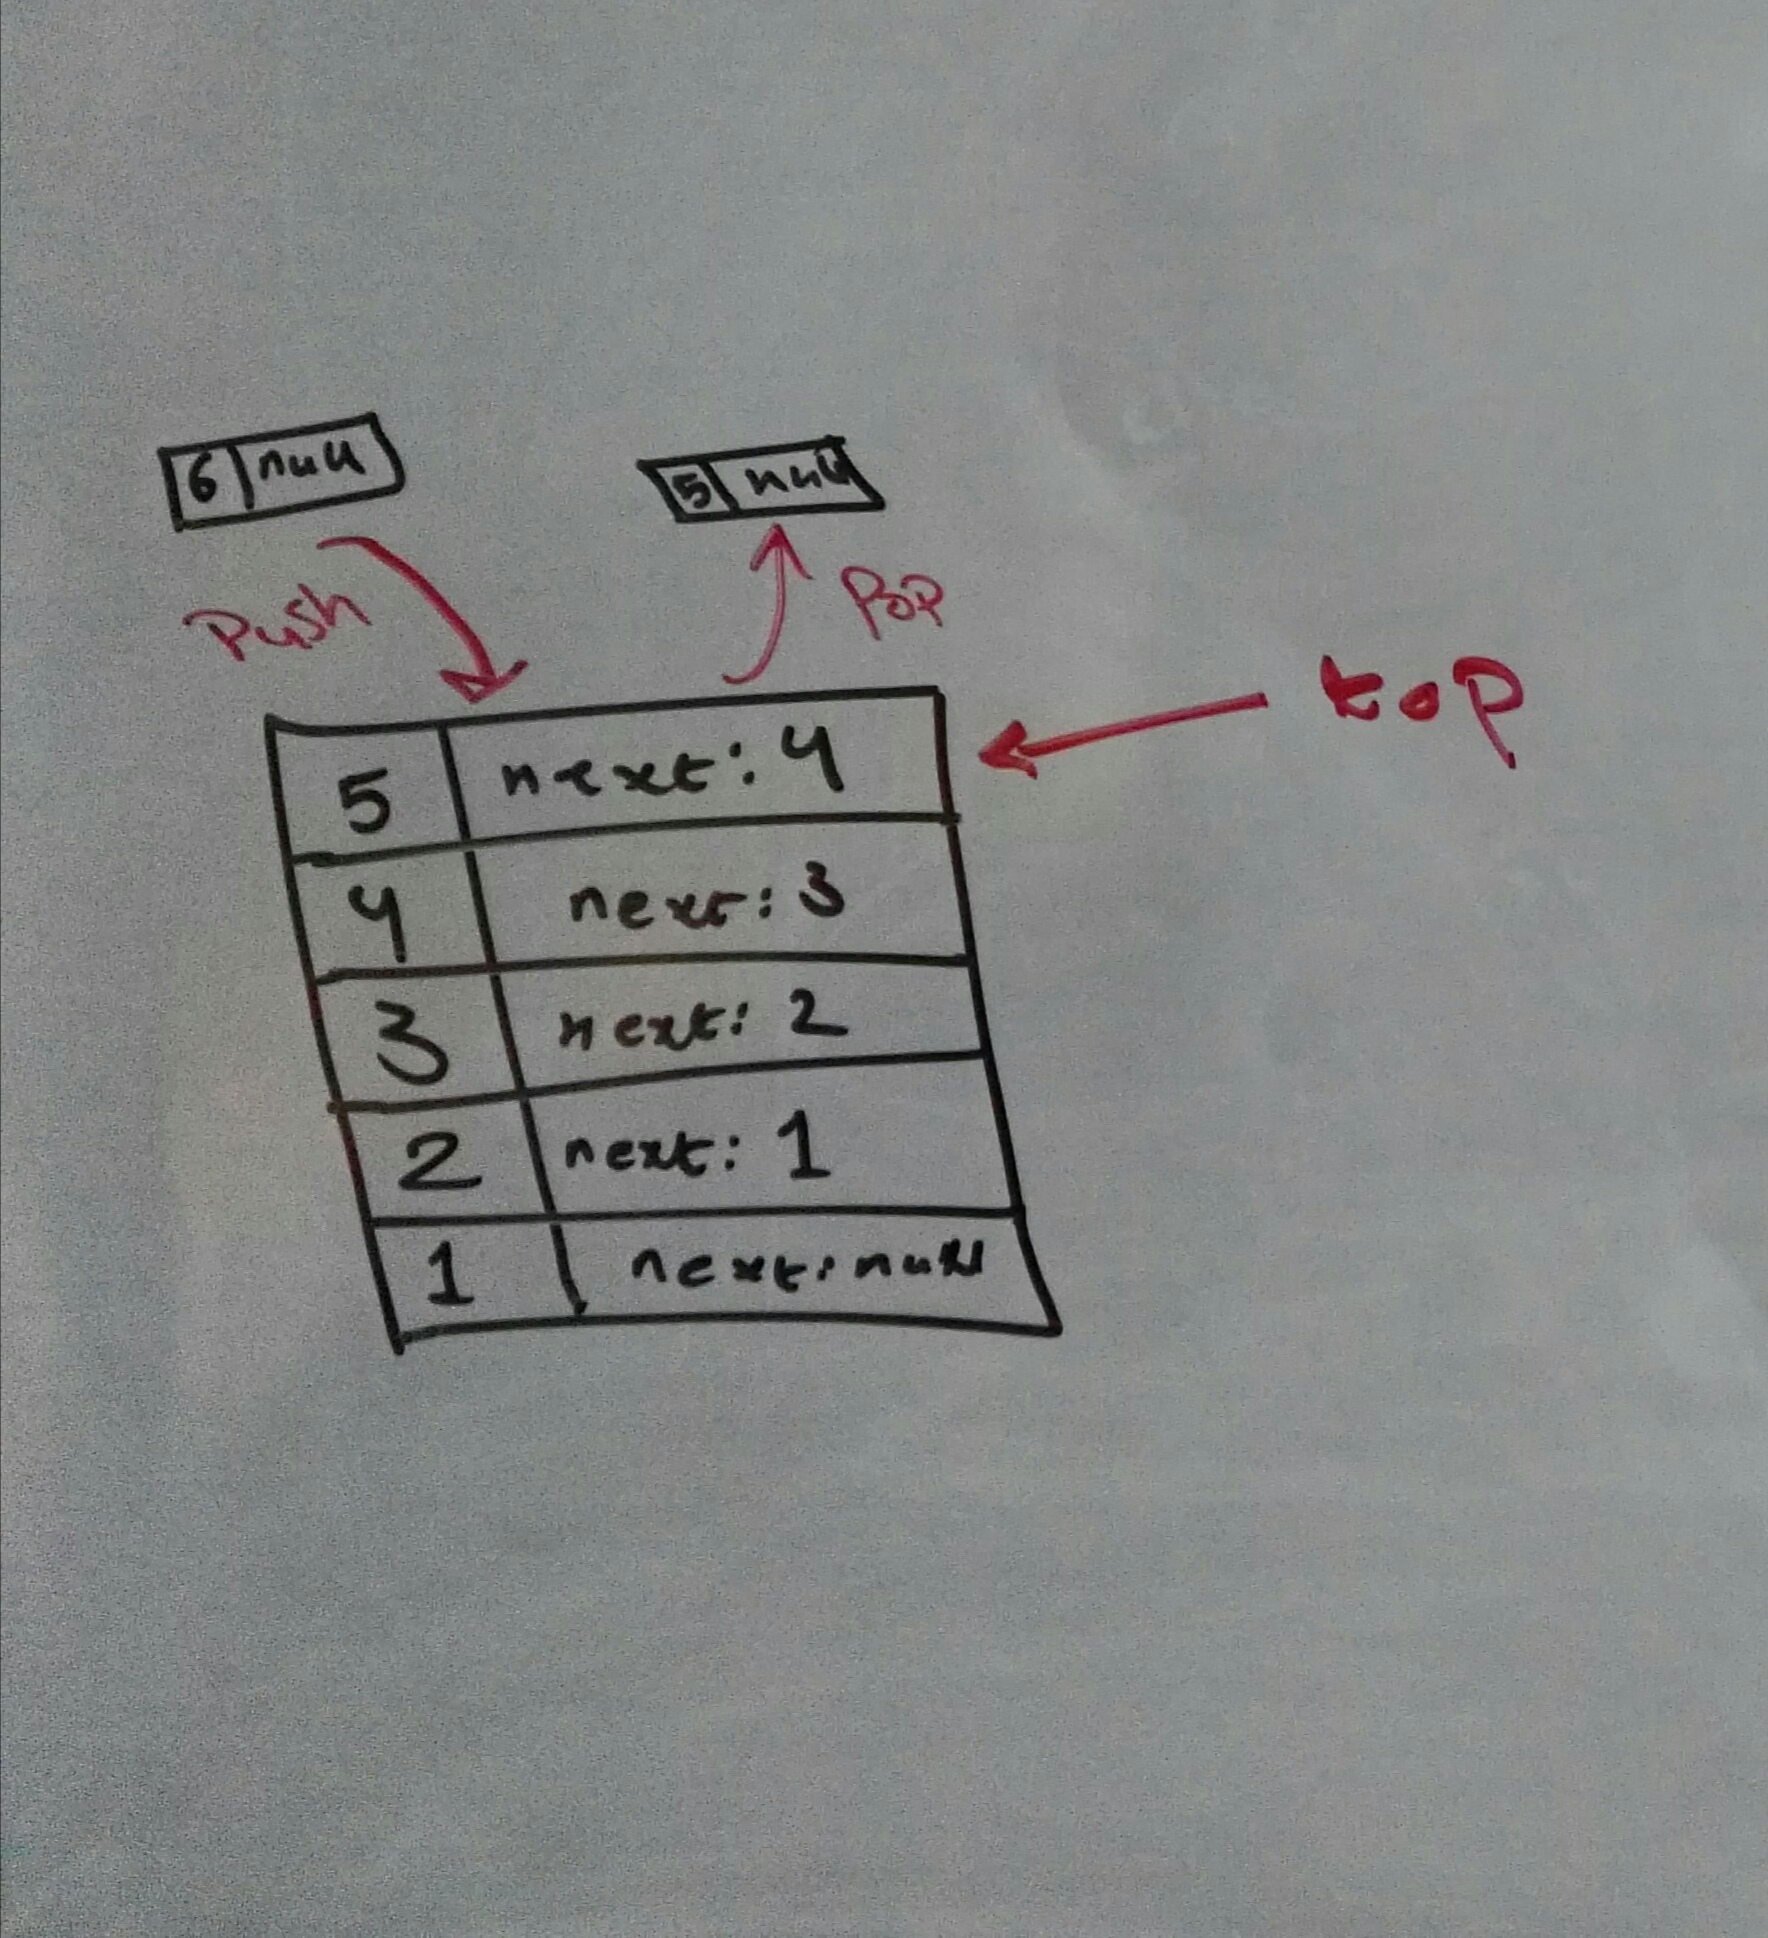 6 null
5 null
Push
Pop
top
5 next: 4
4 next: 3
3 next: 2
2 next: 1
1 next: null